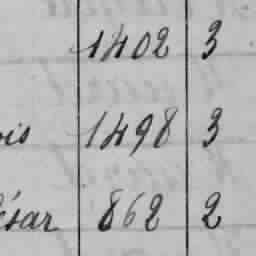 1402 3
ois 1498 3
ésar 862 2